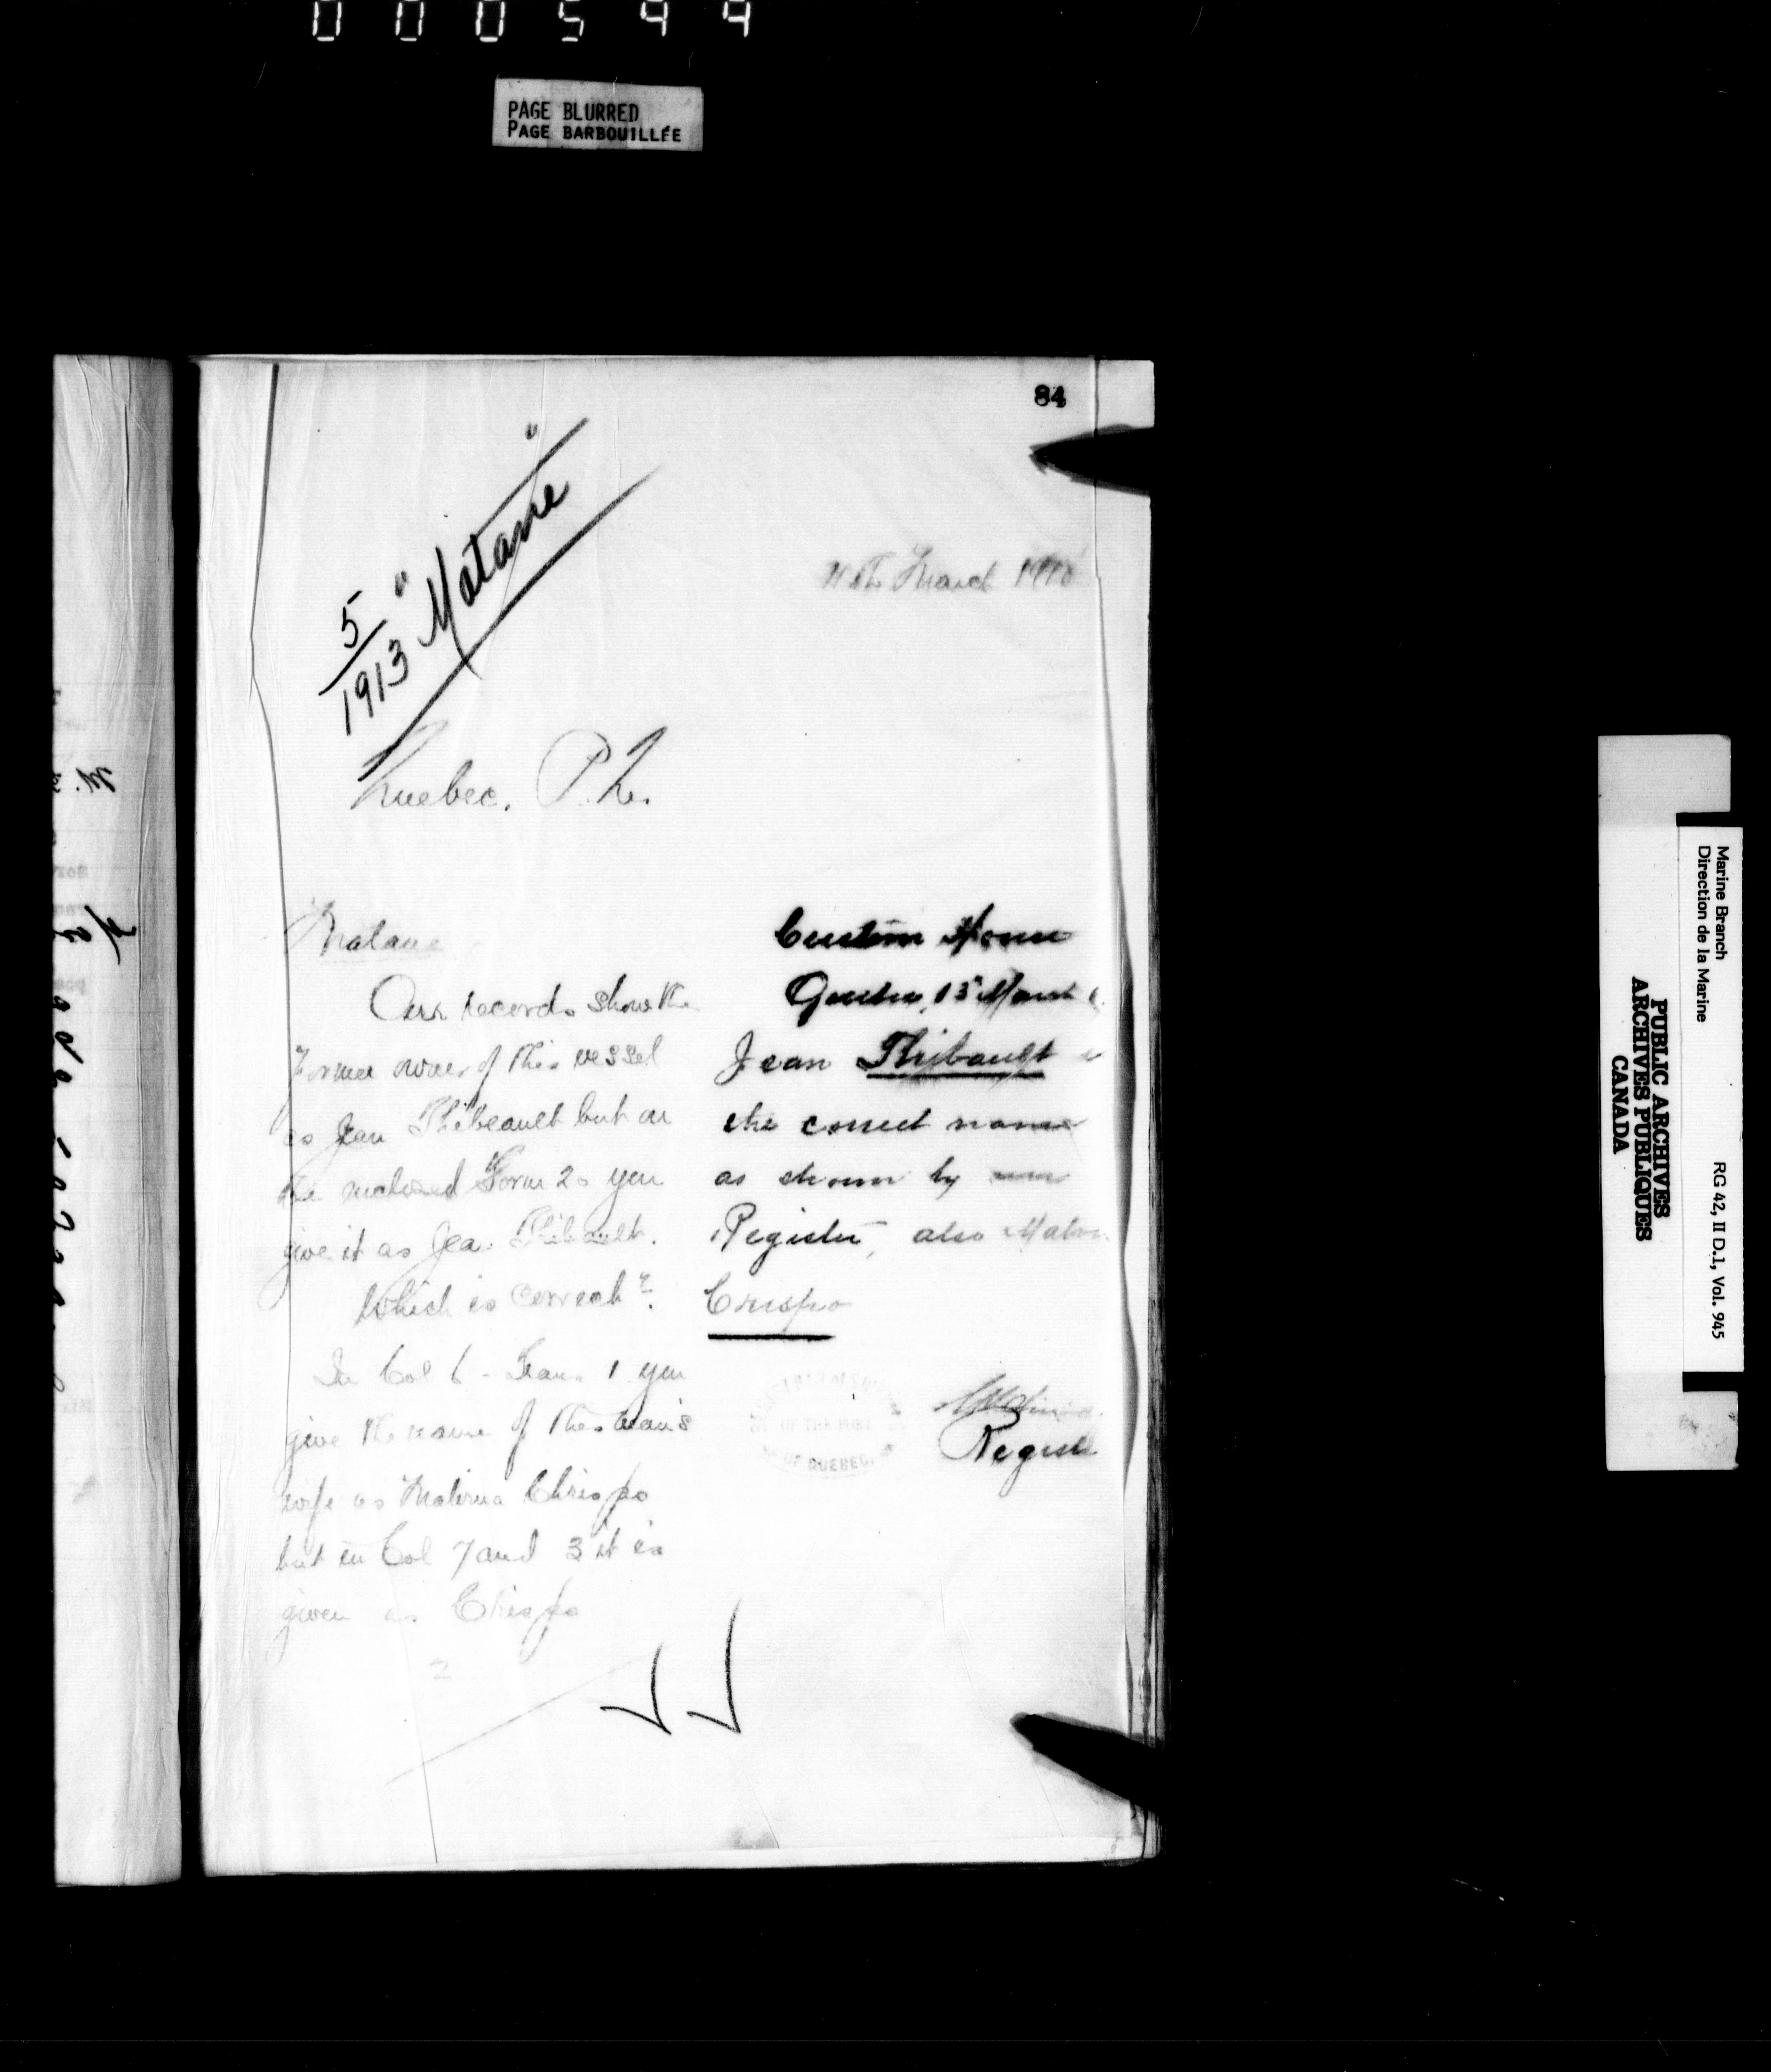 000544
PAGE BLURRED
PAGE BARBOUILLÉE
84
5/1913 "Matane"
11th March
Quebec. P.Q.
Matane
Our records show the
former owner of this vessel
as Jean Thibeault but on
the enclosed Form 20 you
give it as Jean Thibault.
Which is correct?
In Col 6 - Trans. 1 you
give the name of this man's
wife as Chrispo
but in Col 7 and 3 it is
given as
2
Custom House
Quebec, 13" March
Jean Thibault is
the correct name
as shown by
Register, also
Crispo
Regist
REGISTRAR OF SHIPPING
OF THE PORT
OF QUEBEC.
PUBLIC ARCHIVES
ARCHIVES PUBLIQUES
CANADA
Marine Branch
Direction de la Marine
RG 42, II D.1, Vol. 945